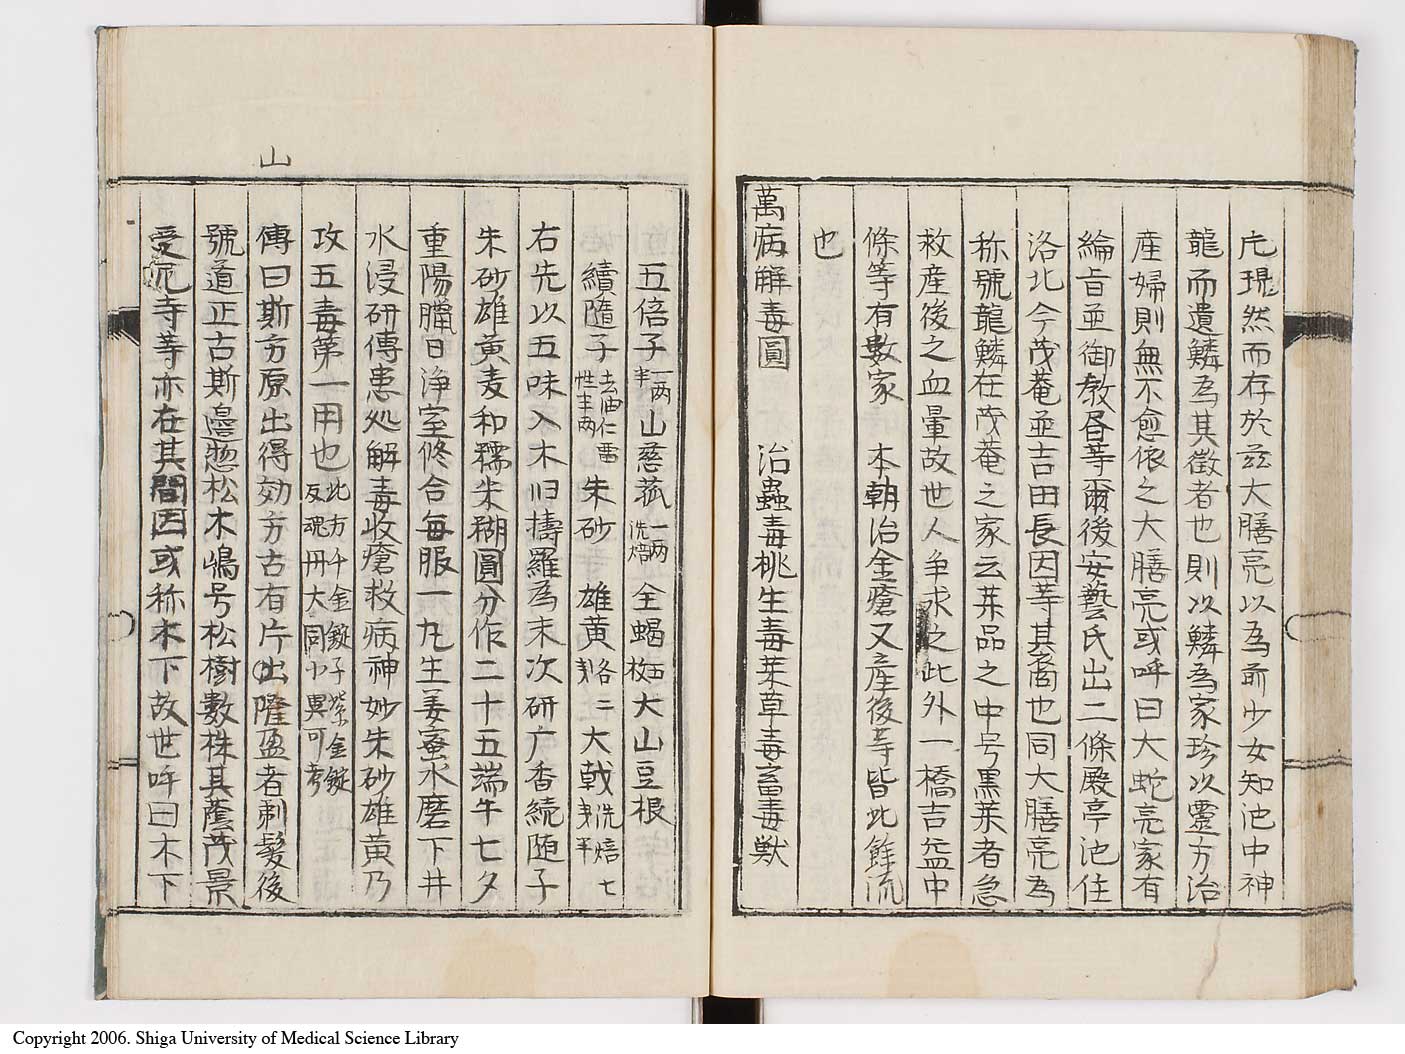 然而存於茲大膳亮以為前少女知池中神
龍而遺鱗為其徵者也則以鱗為家珍以靈方治
産婦則無不愈依之大膳亮或呼曰大蛇亮家有
綸旨並御教昏等爾後安藝氏出二條殿亭池住
洛北今茂菴並吉田長因等其裔也同大膳亮為
称號龍鱗在茂菴之家云葉品之中号黒葉者急
救産後之血暈故世人争求之此外一橋吉益中
條等有數家　本朝治金瘡又産後等皆此餘流
也
萬病解毒圓　治蟲毒桃生毒菜草毒畜毒獣
五倍子一两半山慈菰一两洗焙全蝎五枚大山豆根
續隨子去油仁性半两朱砂　雄黄各二大戟洗焙七
右先以五味入木臼擣羅為末次研广香続随子
朱砂雄黄麦和糯米糊圓分作二十五端午七夕
重陽臘日浄室修合毎服一丸生姜蜜水磨下井
水浸研傳患処解毒收瘡救病神妙朱砂雄黄乃
攻五毒第一用也此方千金錠子紫金錠反魂丹大同小異可考
山
傳曰斯方原出得効方古有片出隆盈者剃髮後
號道正古斯邉惣松木嶋号松樹數株其蔭茂景
受寺等亦在其間因或称木下故世呼曰木下
Copyright 2006. Shiga University of Medical Science Library